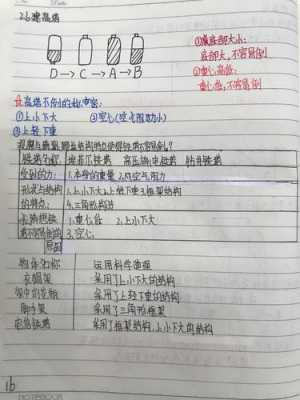 2.6建高塔
①瓶底部大小:
底部大,不容易倒
②重心高低:
重心低,不容易倒
D→C→A→B
高塔不倒的秘密:
①上小下大 ②空心(空气阻力小)
③上轻下重
铁塔名称 埃菲尔铁塔 高压输电铁塔
受到的力: 1.本身的重量 2.风空气阻力
形状与结构 1.上小下大 2.上轻下重 3.框架结构
的特点: 4.三角形构造
铁塔 1.重心低 2.上小下大
不容易倒的 3.空心
原因
物体名称 运用科学原理
采用了上小下大的结构
采用了上轻下重的结构
脚手架 采用了三角形框架
铁塔 采用了框架结构,上小下大的结构
16